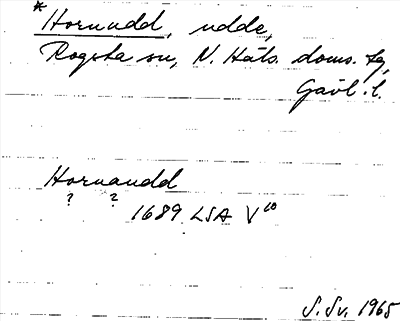 * Hornudd, udde,
Rogsta sn, N. Häls. doms. fg,
Gävl. l.
Hornaudd
? ?
1689 LSA V¹⁰
S. Sv. 1965